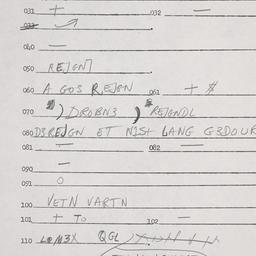 031 + 032 —
033
040 —
050 REJGNJ
060 A GOS REJGN 061 + $
070 ) DROBN3 ) REJGNDL
080 D3REJGN ET NIST LANG G3DOUR
081 — 082 —
090 —
091 O
100 VETN VARTN
101 + TO 102 —
110 QGL